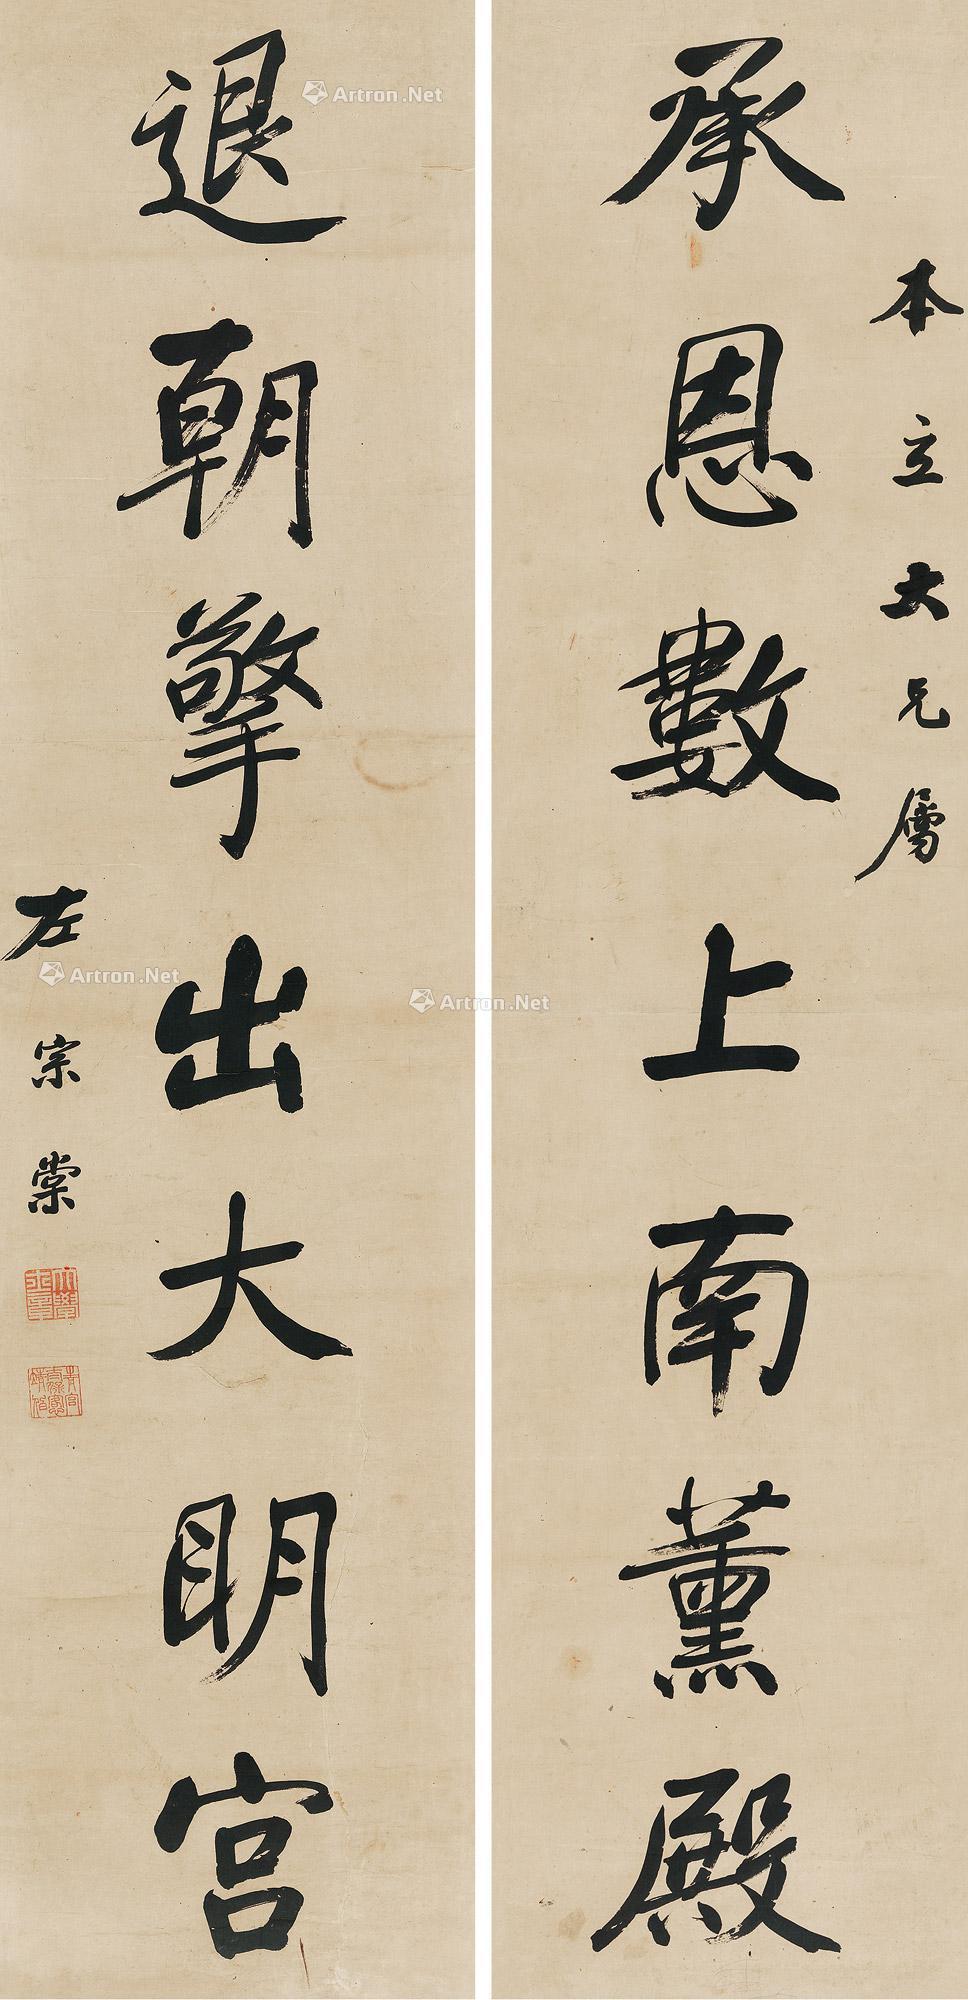 本立大兄屬
承恩數上南薰殿
退朝擎出大明宮
左宗棠
Artron.Net
Artron.Net
Artron.Net